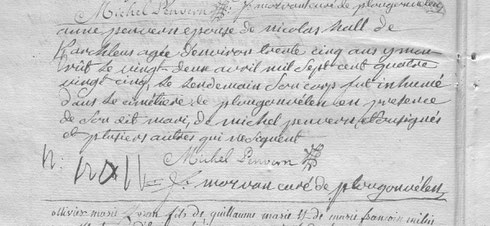 Michel Penvern J. morvan curé de plougonvelen
anne penvern epouse de nicolas hall de
agée denviron trente cinq ans y mou
rut le vingt deux avril mil sept cent quatre
vingt cinq, le lendemain son corps fut inhumé
dans le cimetiere de plougonvelen en presence
de son dit mari, de michel penvern soussignés
et plusieurs autres qui ne signent
Michel Penvern
J. morvan curé de plougonvelen
ollivier marie fils de guillaume marie et de marie françoise milin